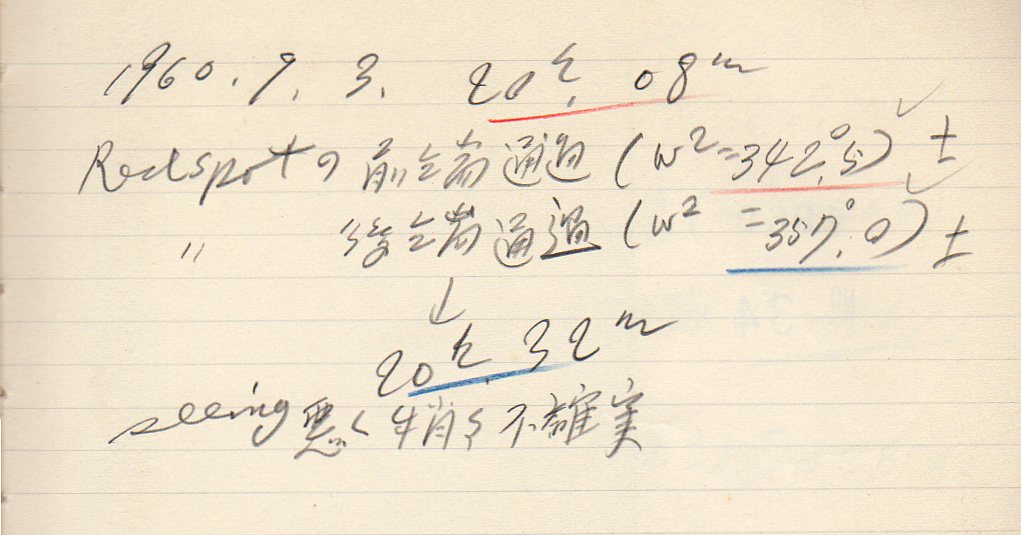 1960. 9. 3. 20h. 08m
Redspotの前端通過 (W2=342°.5) ±
〃 後端通過 (W2 =357°.0) ±
↓
20h. 32m
seeing 悪く稍々不確実